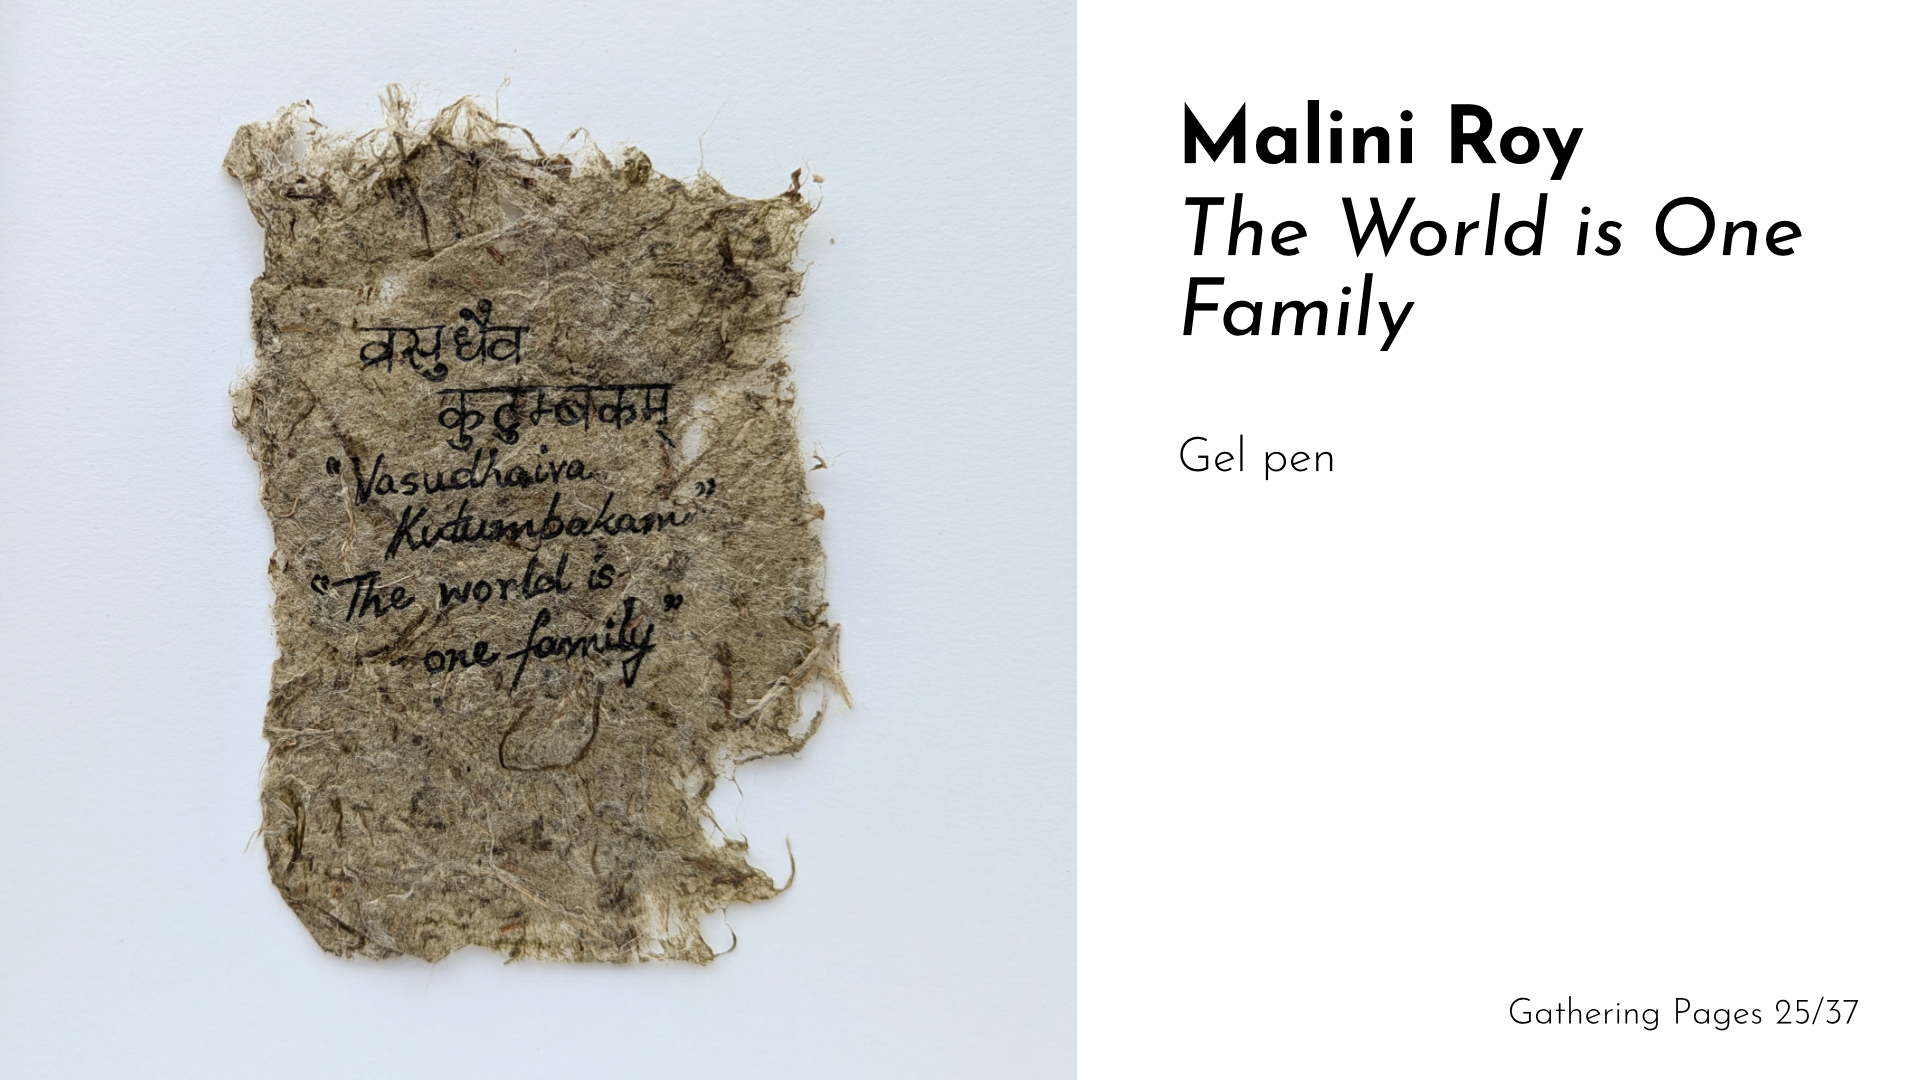 वसुधैव
कुटुम्बकम्
"Vasudhaiva
Kutumbakam"
"The world is
one family"
Malini Roy
The World is One
Family
Gel pen
Gathering Pages 25/37